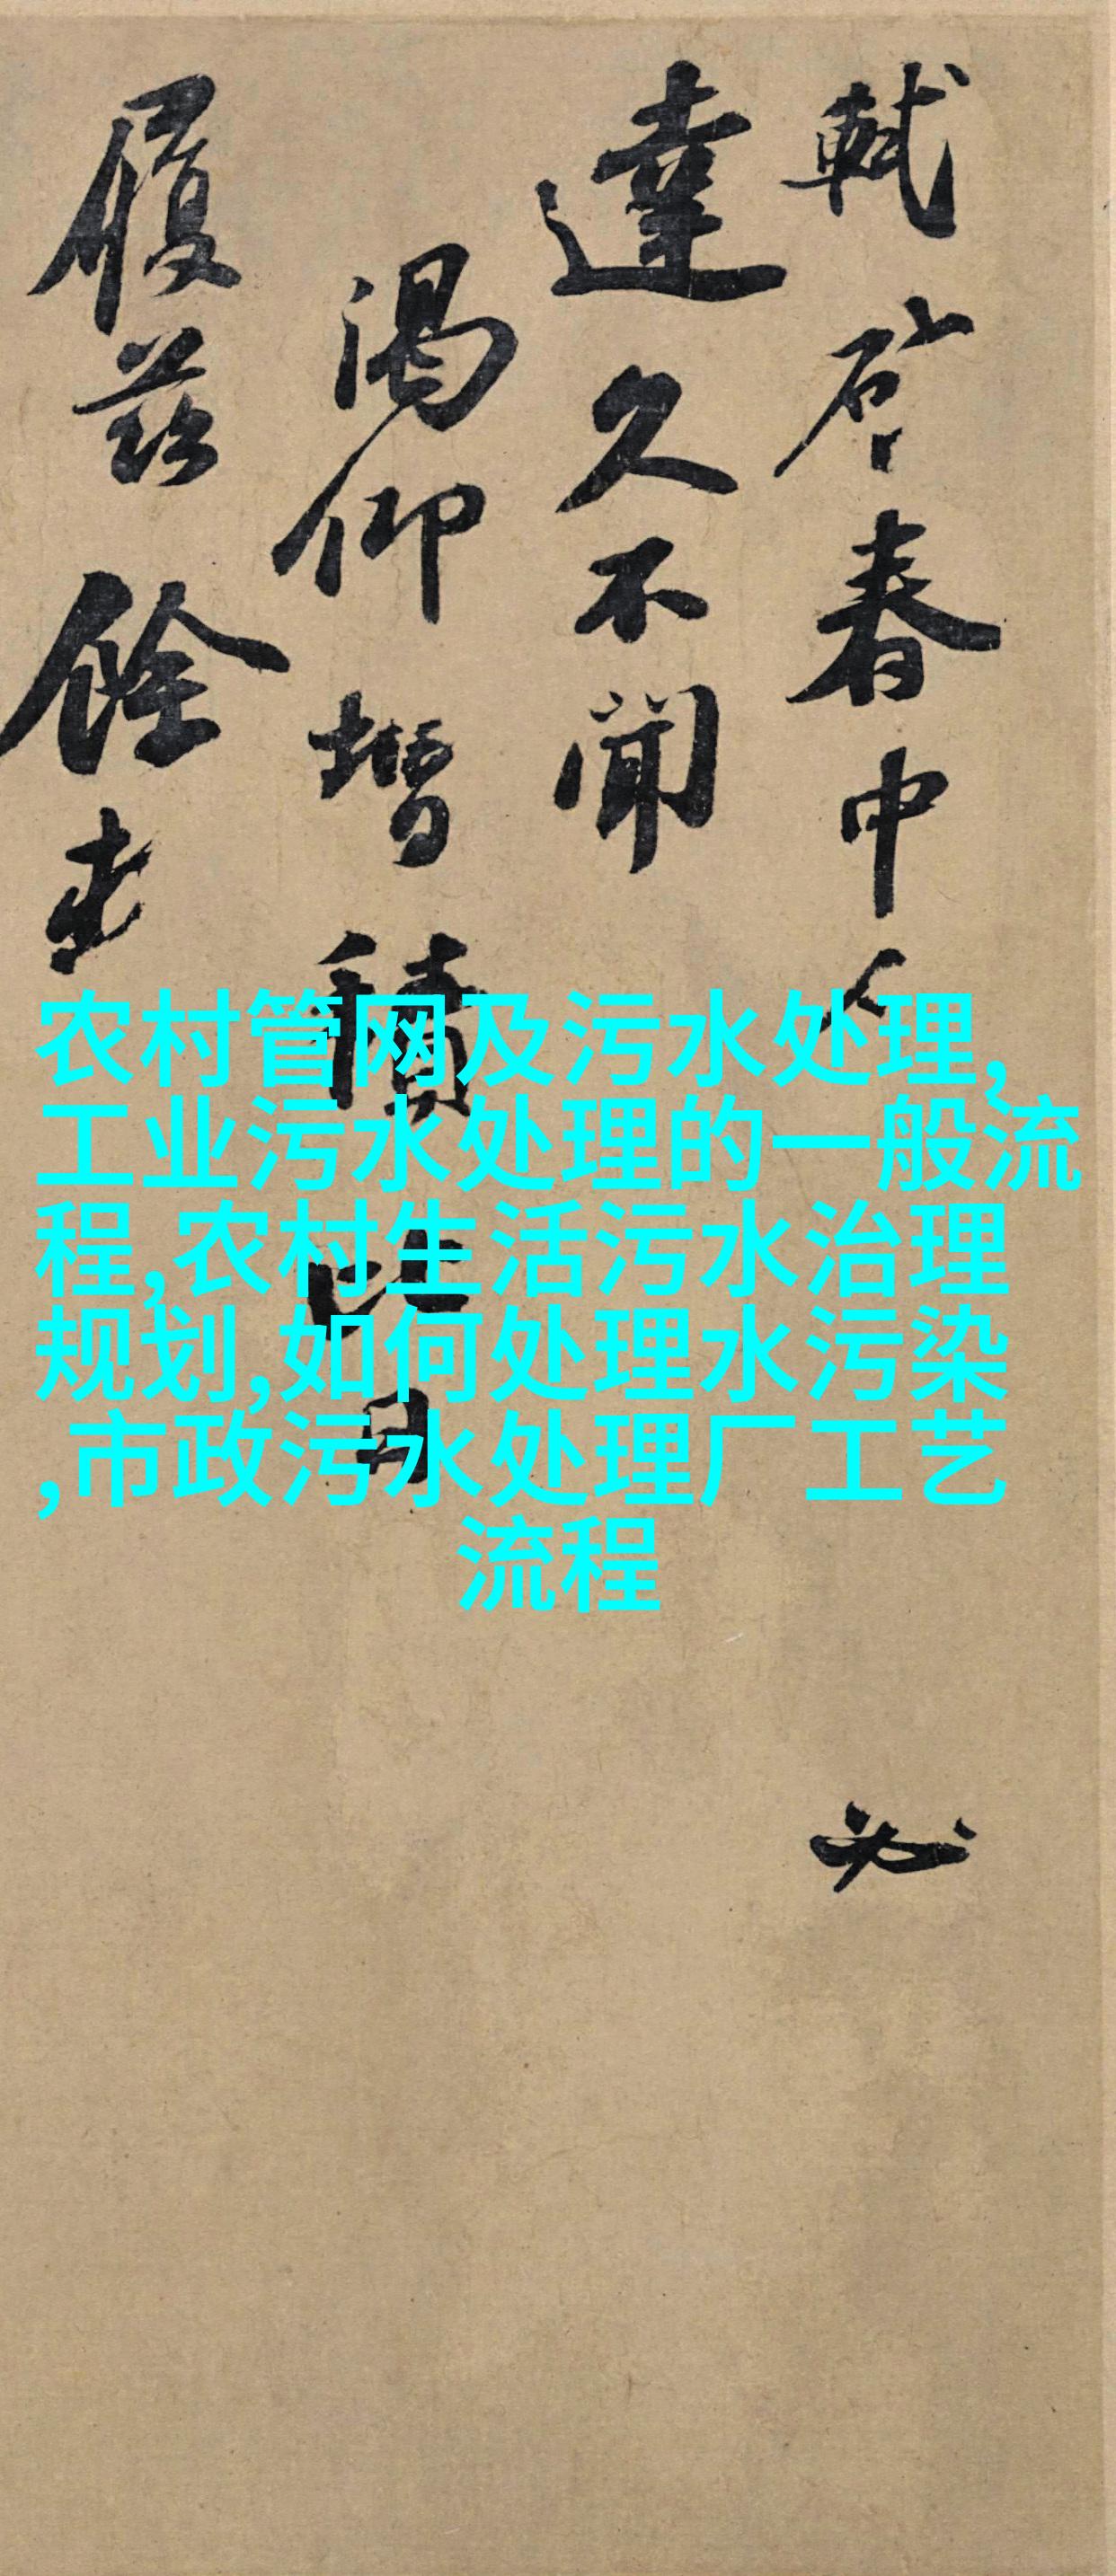 軾啓春中人必
達久不聞
渴仰增積比日
履茲餘
农村管网及污水处理,
工业污水处理的一般流
程,农村生活污水治理
规划,如何处理水污染
,市政污水处理厂工艺
流程